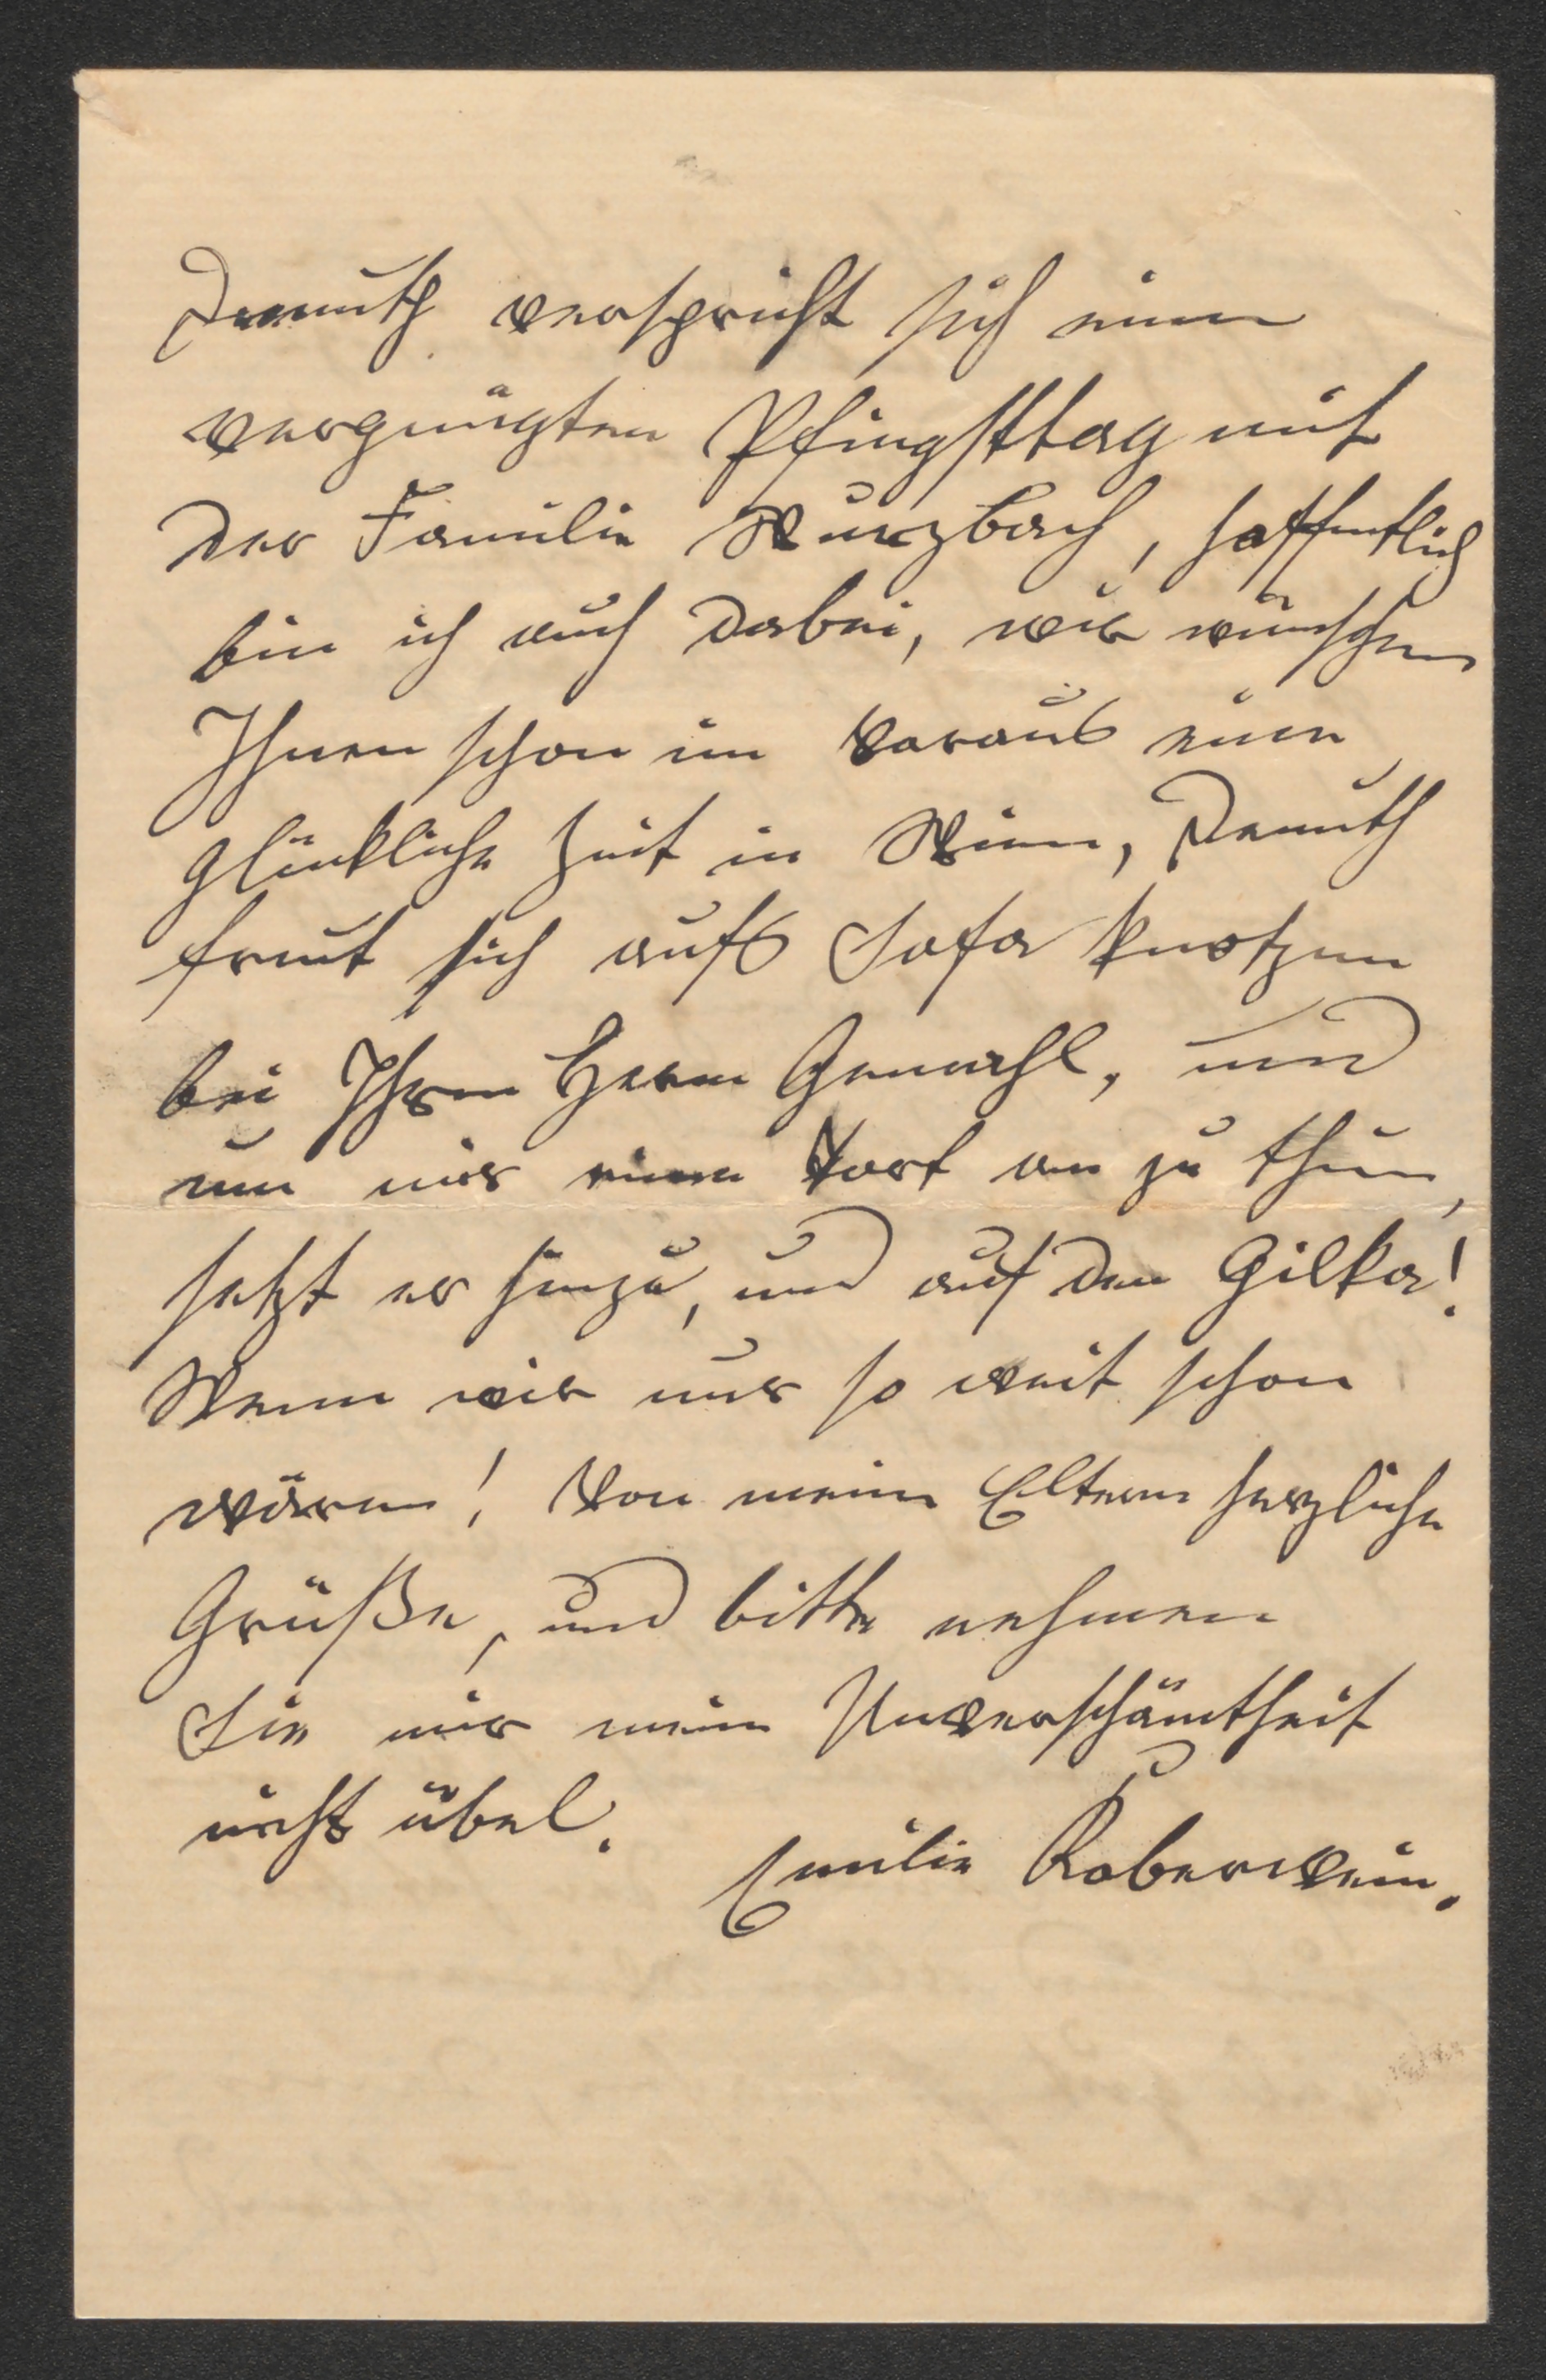 Demuth verspricht sich einen
vergnügten Pfingsttag mit
der Familie Wurzbach, hoffentlich
bin ich auch dabei, wir wünschen
Ihnen schon im Voraus eine
glückliche Zeit in Wien, Demuth
freut sich aufs Sofa knotzen
bei Ihrem Herrn Gemahl, und
um mir einen Tort an zu thun,
setzt er hinzu, und auf den Gilka!
Wenn wir nur so weit schon
wären! Von meinen Eltern herzliche
Grüße, und bitte nehmen
Sie mir meine Unverschämtheit
nicht übel.
Emilie Koberwein.